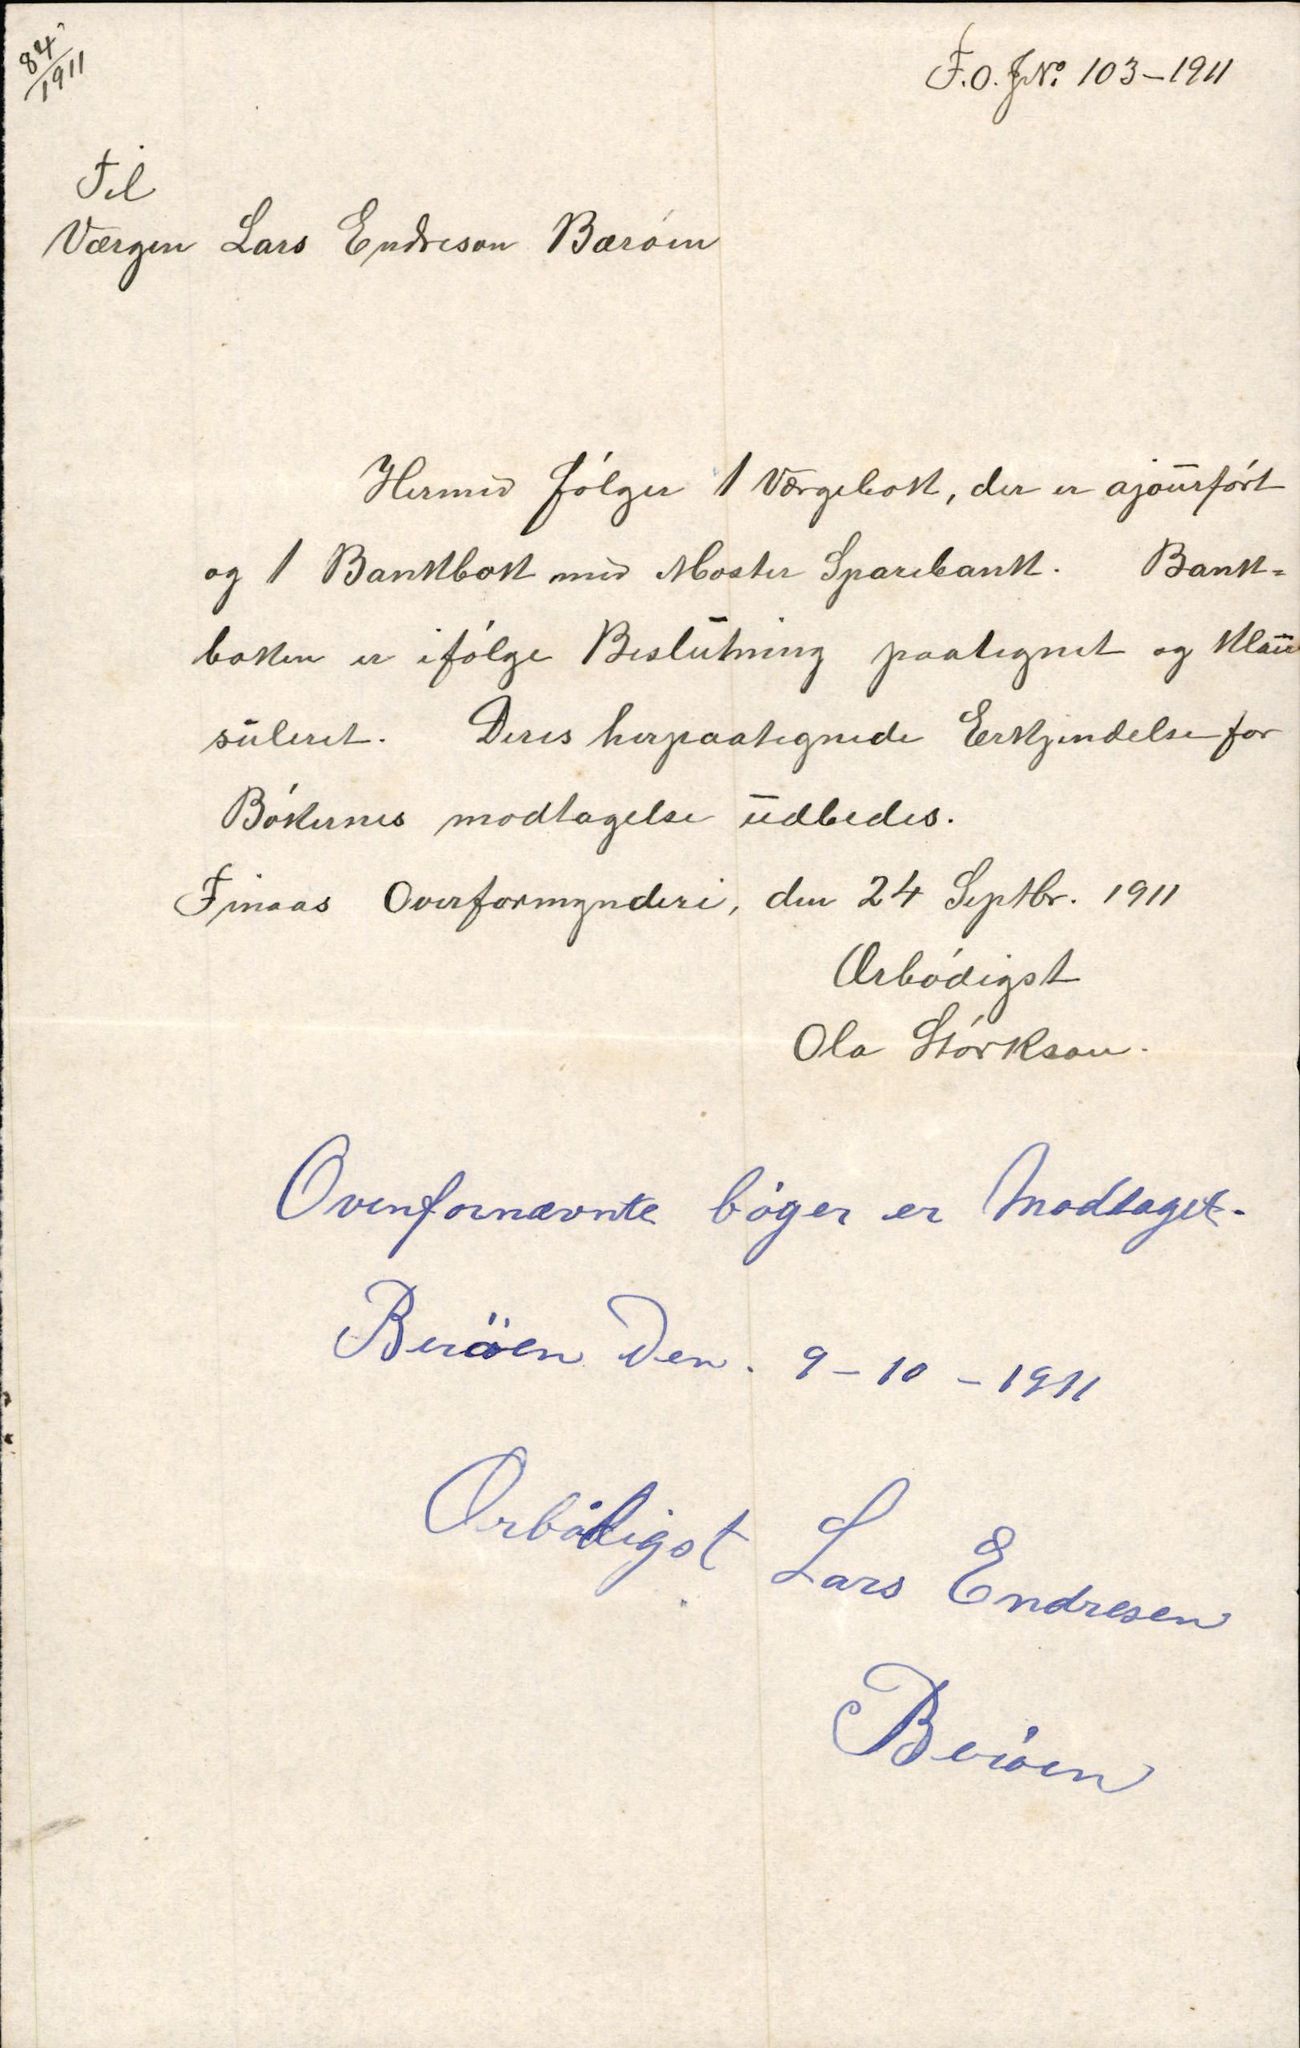 84/1911
F.O.JNo. 103-1911
Til
Værgen Lars Endreson Bærøen
Hermed følger 1 Værgebok, der er ajourført
og 1 Bankbok med Moster Sparebank. Bank-
boken er ifølge Beslutning paategnet og klau
suleret. Deres herpaategnede Erkjendelse for
Bøkernes modtagelse udbedes.
Finaas Overformynderi, den 24 Septbr. 1911
Ærbødigst
Ola Størkson.
Ovenfornævnte bøger er Modtaget.
Berøen Den. 9-10-1911
Ærbødigst Lars Endresen
Berøen